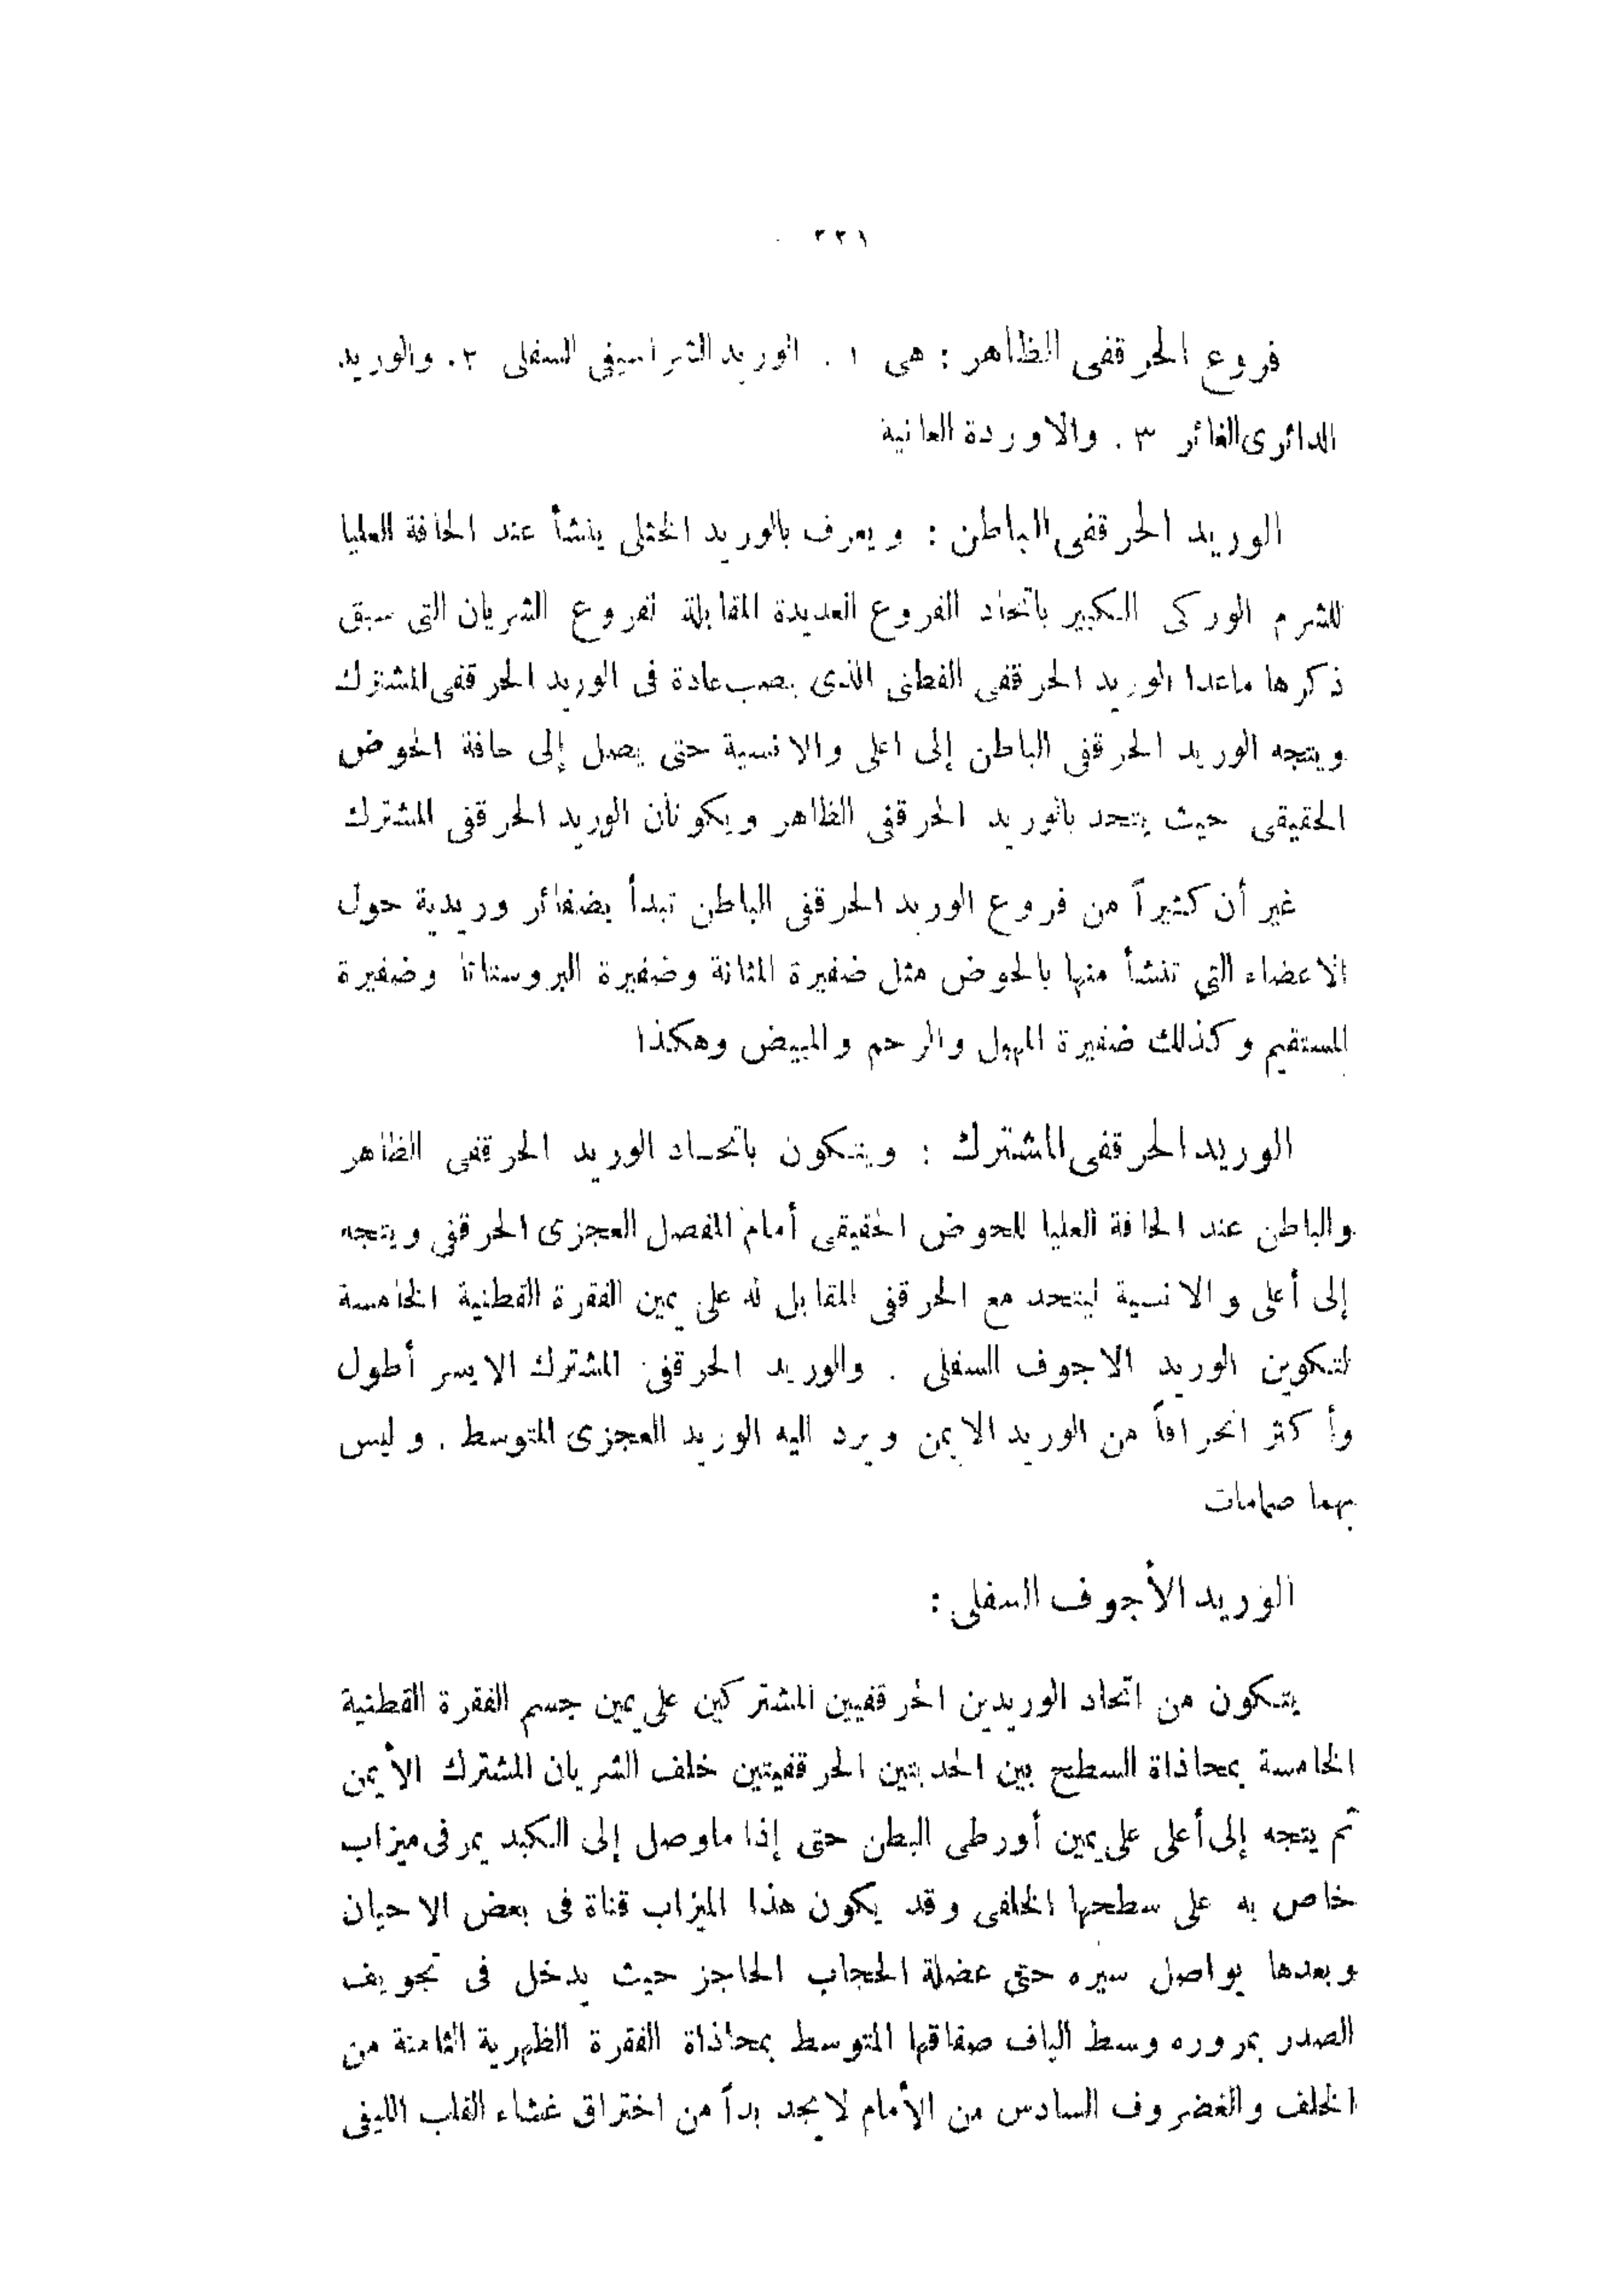 ٢٢١
فروع الحرقفى الظاهر : هى ١ . الوريد الشراسيفي السفلى ٢. والوريد
الدائرى الغائر ٣ . والاوردة العانية
الوريد الحرقفى الباطن : ويعرف بالوريد الخثلى ينشأ عند الحافة العليا
للشرم الوركى الكبير باتحاد الفروع العديدة المقابلة لفروع الشريان التى سبق
ذكرها ماعدا الوريد الحرقفى القطنى الذى يصب عادة فى الوريد الحرقفى المشترك
ويتجه الوريد الحرقفى الباطن إلى اعلى والانسية حتى يصل إلى حافة الحوض
الحقيقى حيث يتحد بالوريد الحرقفى الظاهر ويكونان الوريد الحرقفى المشترك
غير أن كثيراً من فروع الوريد الحرقفى الباطن تبدأ بضفائر وريدية حول
الاعضاء التي تنشأ منها بالحوض مثل ضفيرة المثانة وضفيرة البروستاتا وضفيرة
المستقيم وكذلك ضفيرة المهبل والرحم والمبيض وهكذا
الوريد الحرقفى المشترك : ويتكون باتحاد الوريد الحرقفى الظاهر
والباطن عند الحافة العليا للحوض الحقيقى أمام المفصل العجزى الحرقفى ويتجه
إلى أعلى والانسية ليتحد مع الحرقفى المقابل له على يمين الفقرة القطنية الخامسة
لتكوين الوريد الاجوف السفلى . والوريد الحرقفى المشترك الايسر أطول
وأكثر انحرافاً من الوريد الايمن ويرد اليه الوريد العجزى المتوسط . وليس
بهما صمامات
الوريد الأجوف السفلى :
يتكون من اتحاد الوريدين الحرقفيين المشتركين على يمين جسم الفقرة القطنية
الخامسة بمحاذاة السطح بين الحدبتين الحرقفيتين خلف الشريان المشترك الأيمن
ثم يتجه إلى أعلى على يمين أورطى البطن حتى إذا ماوصل إلى الكبد يمر فى ميزاب
خاص به على سطحها الخلفى وقد يكون هذا الميزاب قناة فى بعض الاحيان
وبعدها يواصل سيره حتى عضلة الحجاب الحاجز حيث يدخل فى تجويف
الصدر بمروره وسط الياف صفاقها المتوسط بمحاذاة الفقرة الظهرية الثامنة من
الخلف والغضروف السادس من الأمام لا يجد بداً من اختراق غشاء القلب الليفى